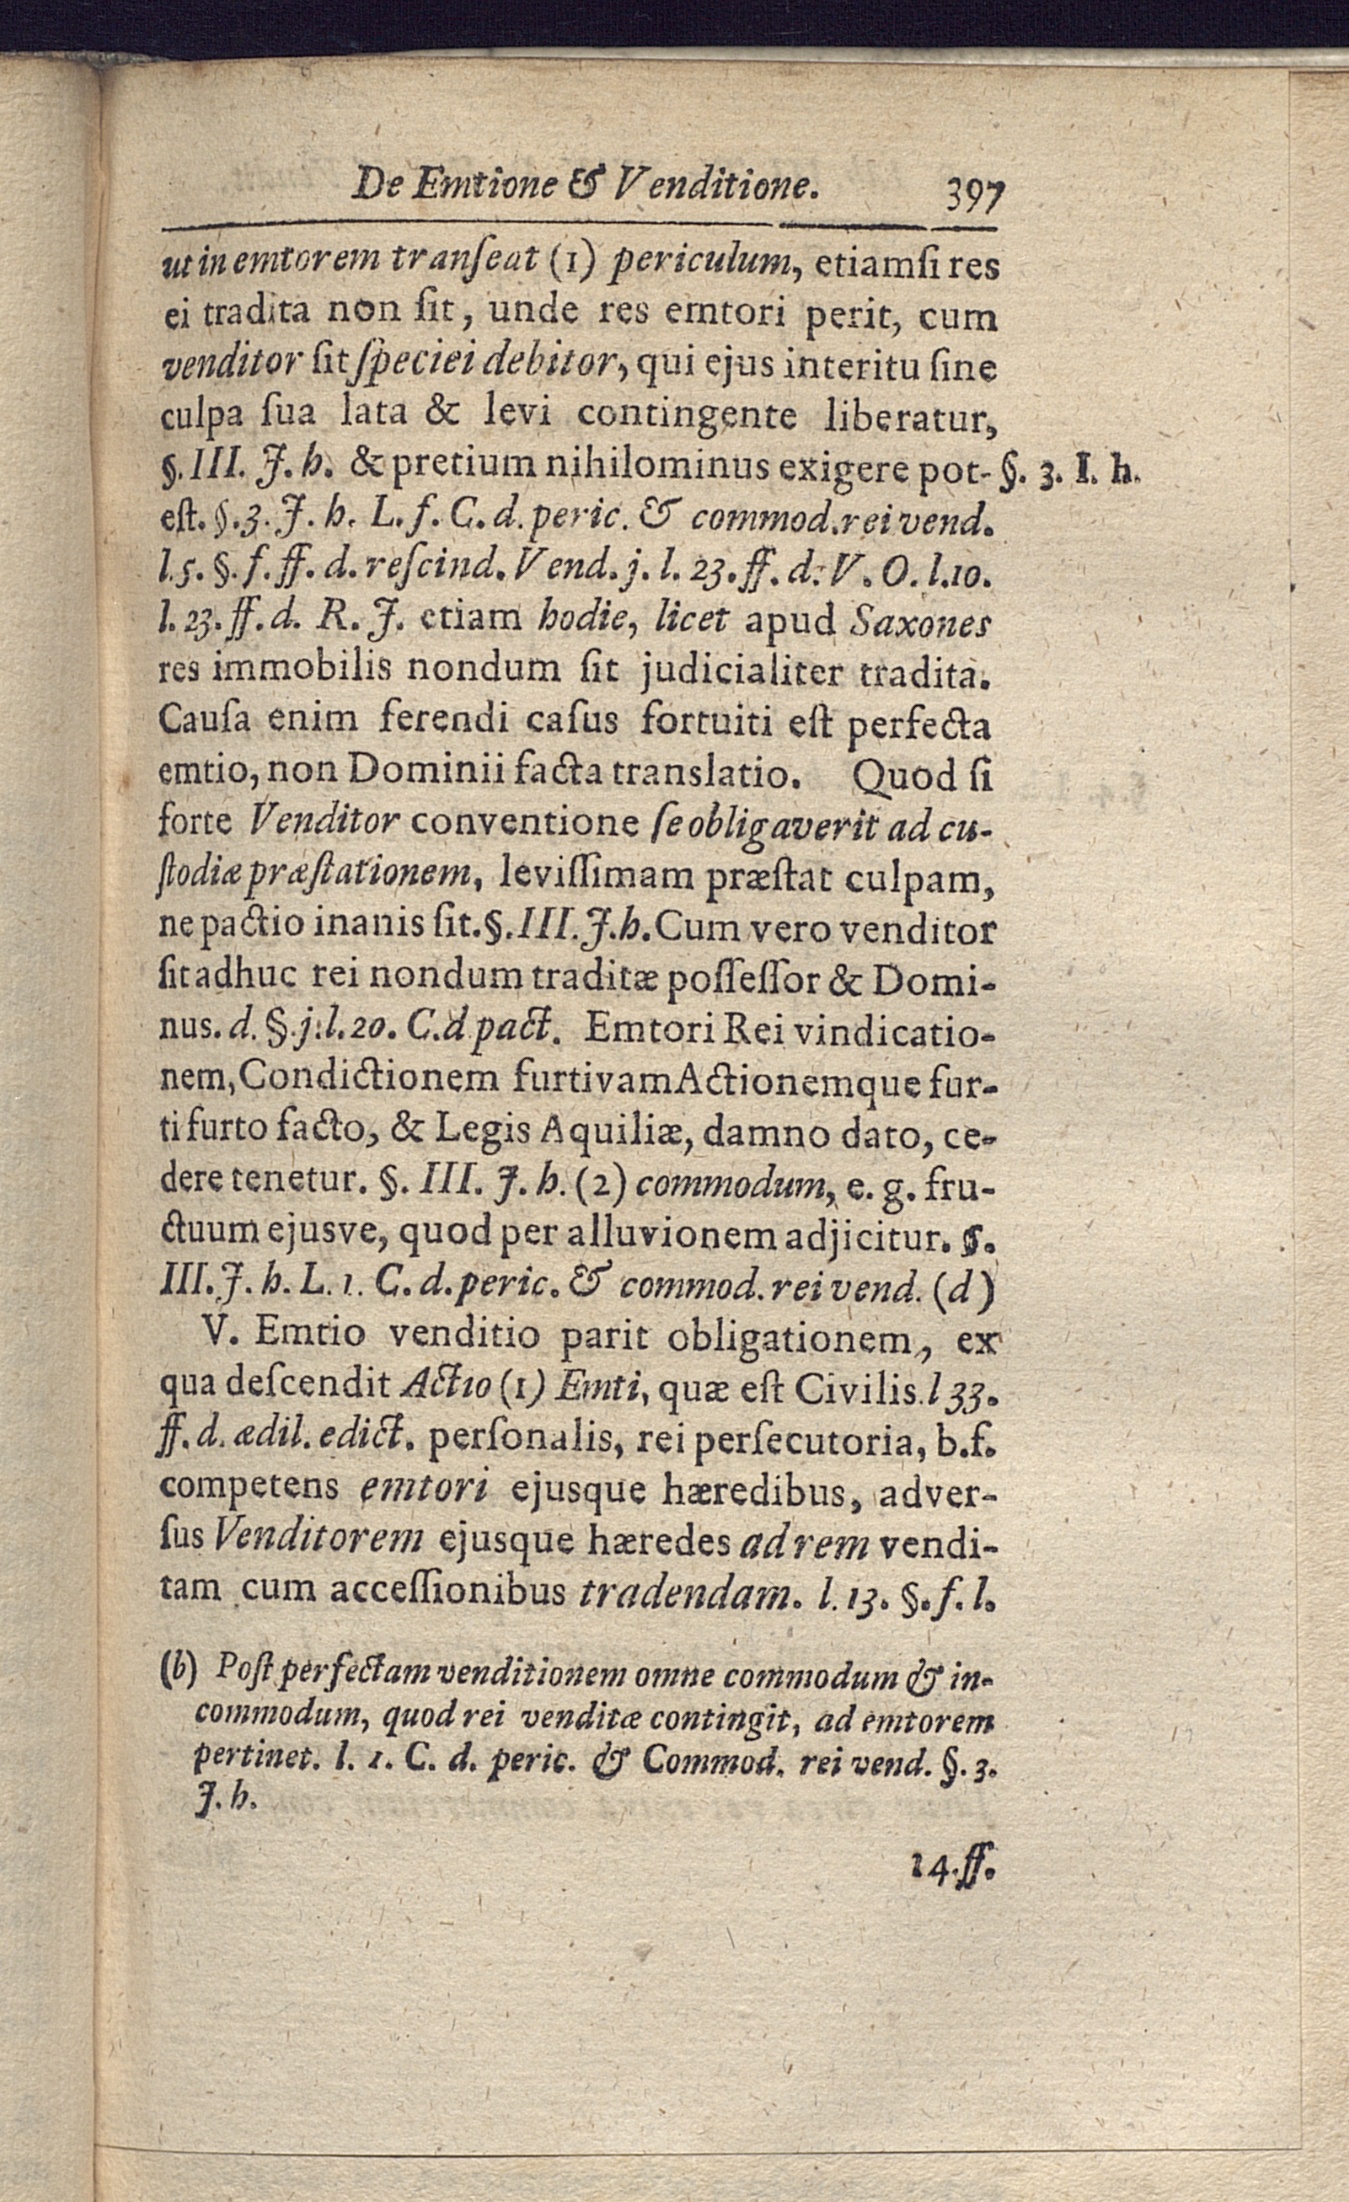 De Emtione & Venditione. 397
ut in emtorem tranſeat (1) periculum, etiamſi res
ei tradita non ſit, unde res emtori perit, cum
venditor ſit ſpeciei debitor, qui ejus interitu ſine
culpa ſua lata & levi contingente liberatur,
§. III. J. h. & pretium nihilominus exigere pot- §. 3. I. h.
eſt. §. 3. J. h. L. f. C. d. peric. & commod. rei vend.
l. 5. §. f. ff. d. reſcind. Vend. j. l. 23. ff. d. V. O. l. 10.
l. 23. ff. d. R. J. etiam hodie, licet apud Saxones
res immobilis nondum ſit judicialiter tradita.
Cauſa enim ferendi caſus fortuiti eſt perfecta
emtio, non Dominii facta translatio. Quod ſi
forte Venditor conventione ſe obligaverit ad cu-
ſtodiæ præſtationem, leviſſimam præſtat culpam,
ne pactio inanis ſit. §. III. J. h. Cum vero venditor
ſit adhuc rei nondum traditæ poſſeſſor & Domi-
nus. d. §. j. l. 20. C. d pact. Emtori Rei vindicatio-
nem, Condictionem furtivam Actionemque fur-
ti furto facto, & Legis Aquiliæ, damno dato, ce-
dere tenetur. §. III. J. h. (2) commodum, e. g. fru-
ctuum ejusve, quod per alluvionem adjicitur. §.
III. J. h. L. 1. C. d. peric. & commod. rei vend. (d)
V. Emtio venditio parit obligationem, ex
qua deſcendit Actio (1) Emti, quæ eſt Civilis. l 33.
ff. d. ædil. edict. perſonalis, rei perſecutoria, b. f.
competens emtori ejusque hæredibus, adver-
ſus Venditorem ejusque hæredes ad rem vendi-
tam cum acceſſionibus tradendam. l. 13. §. f. l.
(b) Poſt perfectam venditionem omne commodum & in-
commodum, quod rei venditæ contingit, ad emtorem
pertinet. l. 1. C. d. peric. & Commod. rei vend. §. 3.
J. h.
14. ff.